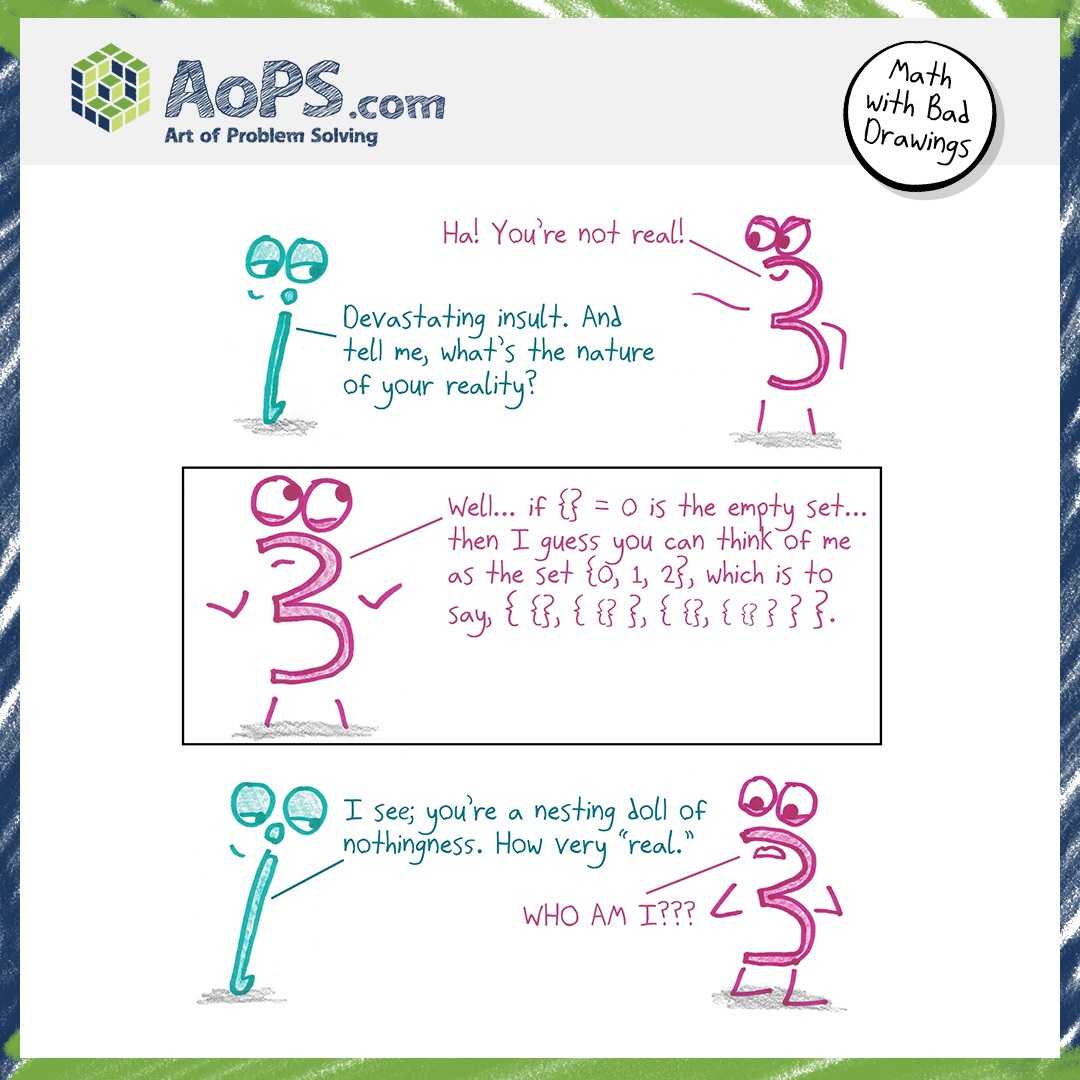 AoPS.com
Art of Problem Solving
Math
with Bad
Drawings
Ha! You're not real!
Devastating insult. And
tell me, what's the nature
of your reality?
Well... if {} = 0 is the empty set...
then I guess you can think of me
as the set {0, 1, 2}, which is to
say, { {}, { {} }, { {}, { {} } } }.
I see; you're a nesting doll of
nothingness. How very "real."
WHO AM I???